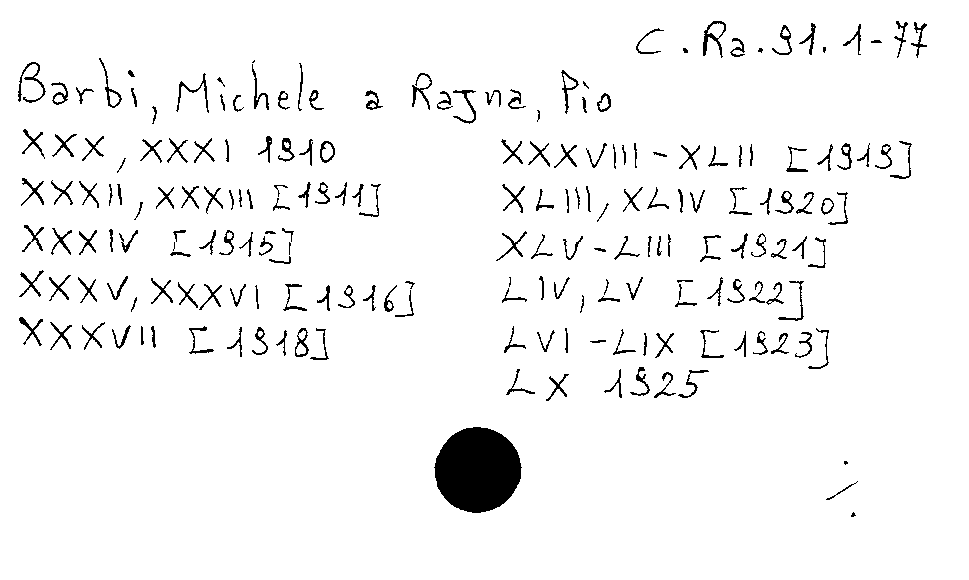 C. Ra. 91. 1-77
Barbi, Michele a Rajna, Pio
XXX, XXXI 1910
XXXII, XXXIII [1911]
XXXIV [1915]
XXXV, XXXVI [1916]
XXXVII [1918]
XXXVIII - XLII [1919]
XLIII, XLIV [1920]
XLV - LIII [1921]
LIV, LV [1922]
LVI - LIX [1923]
LX 1925
./.